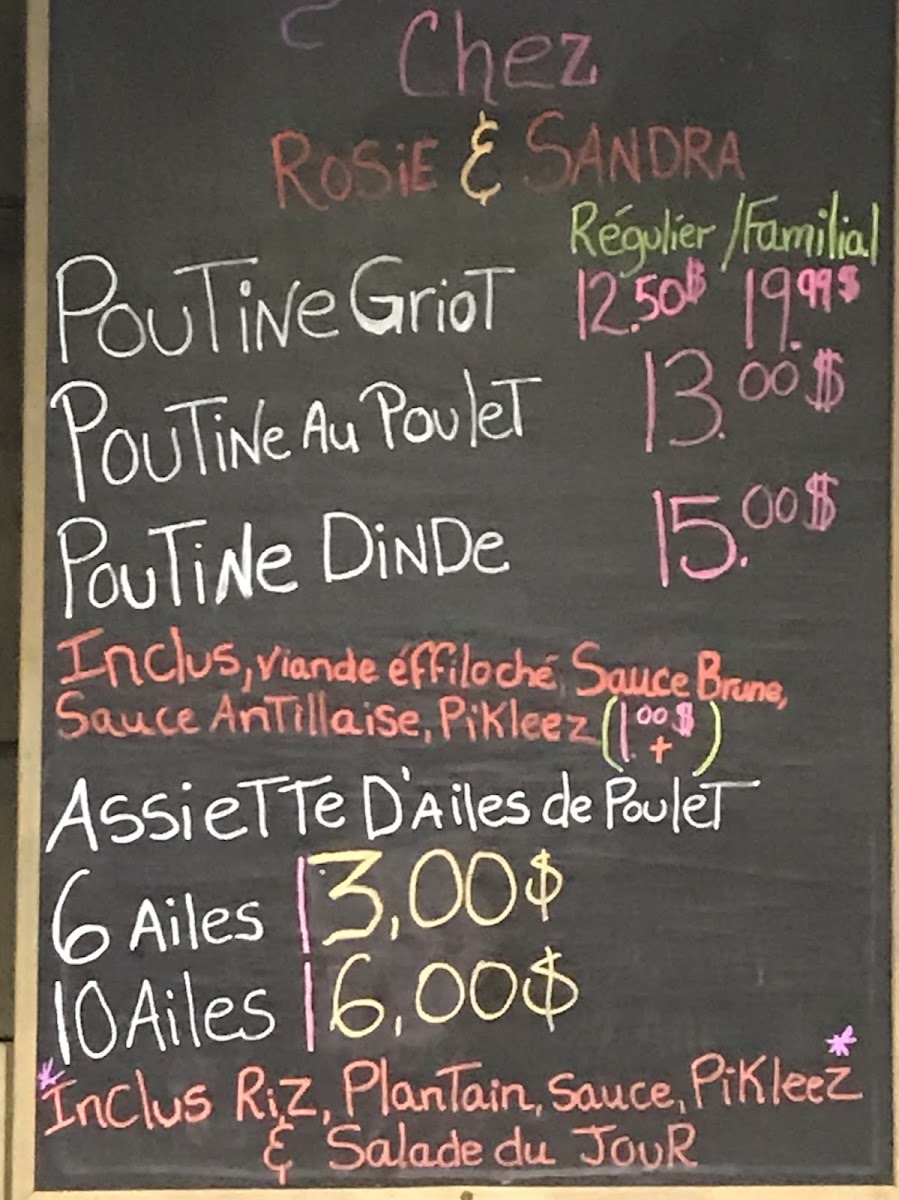 Chez
ROSIE & SANDRA
Régulier /Familial
POUTINE GRIOT 12.50$ 19.99$
POUTINE AU POULET 13.00$
POUTINE DINDE 15.00$
Inclus, viande éffiloché, Sauce Brune,
Sauce Antillaise, Pikleez (1.00$ +)
ASSIETTE D'AILES de POULET
6 Ailes 13,00$
10 Ailes 16,00$
*Inclus Riz, Plantain, Sauce, Pikleez*
& Salade du JOUR